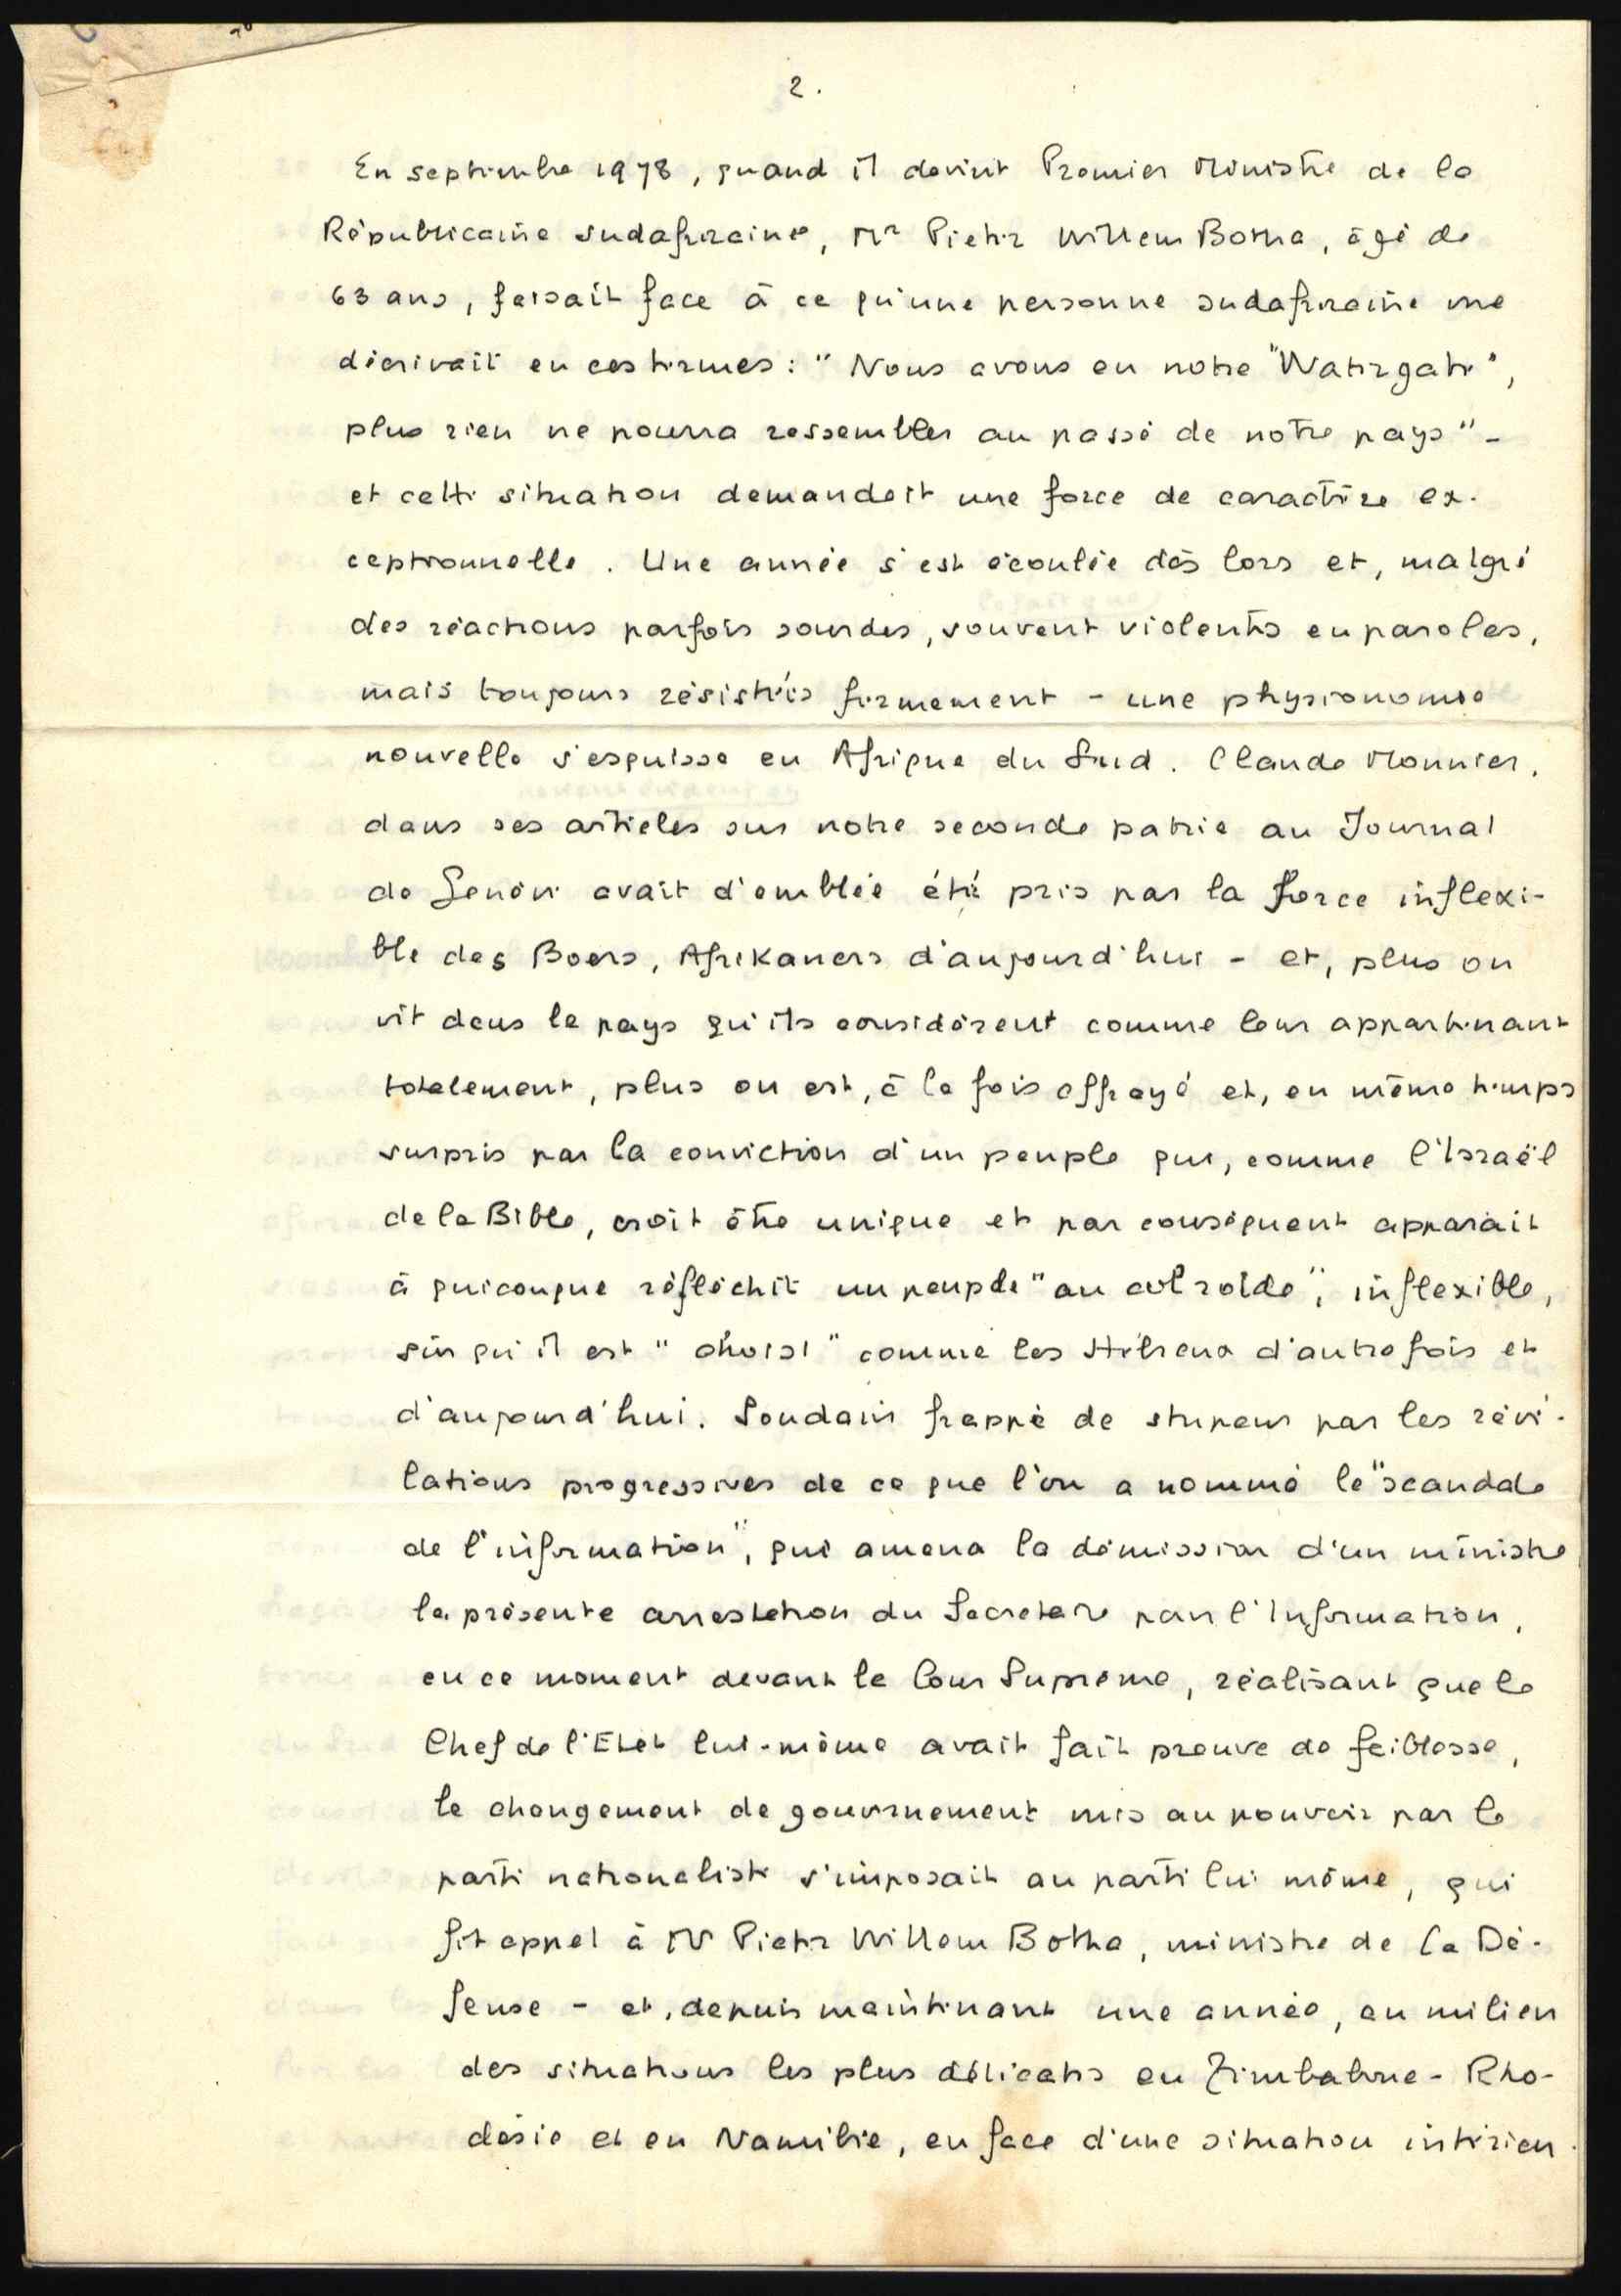 2.
En septembre 1978, quand il devint Premier Ministre de la
Républicaine sudafricaine, Mr Pieter Willem Botha, âgé de
63 ans, faisait face à ce qu'une personne sudafricaine me
décrivait en ces termes : " Nous avons eu notre "Watergate",
plus rien ne pourra ressembler au passé de notre pays" -
et cette situation demandait une force de caractère ex-
ceptionnelle. Une année s'est écoulée dès lors et, malgré
des réactions parfois sourdes, souvent violentes en paroles,
mais toujours résistées fermement - une physionomie
nouvelle s'esquisse en Afrique du Sud. Claude Monnier,
dans ses articles sur notre seconde patrie au Journal
de Genève avait d'emblée été pris par la force inflexi-
ble des Boers, Afrikaners d'aujourd'hui - et, plus on
vit dans le pays qu'ils considèrent comme leur appartenant
totalement, plus on est, à la fois effrayé et, en même temps
surpris par la conviction d'un peuple qui, comme l'Israël
de la Bible, croit être unique et par conséquent apparait
à quiconque réfléchit un peuple "au col roide", inflexible,
sûr qu'il est "choisi" comme les Hébreux d'autrefois et
d'aujourd'hui. Soudain frappé de stupeur par les révé-
lations progressives de ce que l'on a nommé le "scandale
de l'information", qui amena la démission d'un ministre
la présente arrestation du Secretaire pour l'Information,
en ce moment devant la Cour Suprême, réalisant que le
Chef de l'Etat lui-même avait fait preuve de faiblesse,
le changement de gouvernement mis au pouvoir par le
parti nationaliste s'imposait au parti lui même, qui
fit appel à Mr Pieter Willem Botha, ministre de la Dé-
fense - et, depuis maintenant une année, au milieu
des situations les plus délicates en Zimbabwe - Rho-
désie et en Namibie, en face d'une situation intérieu-